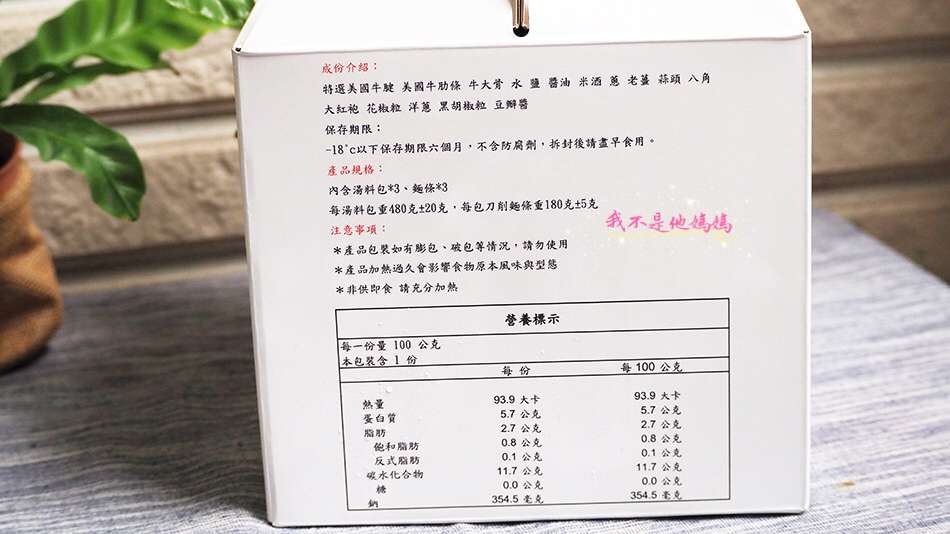 成份介紹：
特選美國牛腱 美國牛肋條 牛大骨 水 鹽 醬油 米酒 蔥 老薑 蒜頭 八角
大紅袍 花椒粒 洋蔥 黑胡椒粒 豆瓣醬
保存期限：
-18°c以下保存期限六個月，不含防腐劑，拆封後請盡早食用。
產品規格：
內含湯料包*3、麵條*3
每湯料包重480克±20克，每包刀削麵條重180克±5克
我不是他媽媽
注意事項：
＊產品包裝如有膨包、破包等情況，請勿使用
＊產品加熱過久會影響食物原本風味與型態
＊非供即食 請充分加熱
營養標示
每一份量 100 公克
本包裝含 1 份
每 份 每 100 公克
熱量 93.9 大卡 93.9 大卡
蛋白質 5.7 公克 5.7 公克
脂肪 2.7 公克 2.7 公克
飽和脂肪 0.8 公克 0.8 公克
反式脂肪 0.1 公克 0.1 公克
碳水化合物 11.7 公克 11.7 公克
糖 0.0 公克 0.0 公克
鈉 354.5 毫克 354.5 毫克